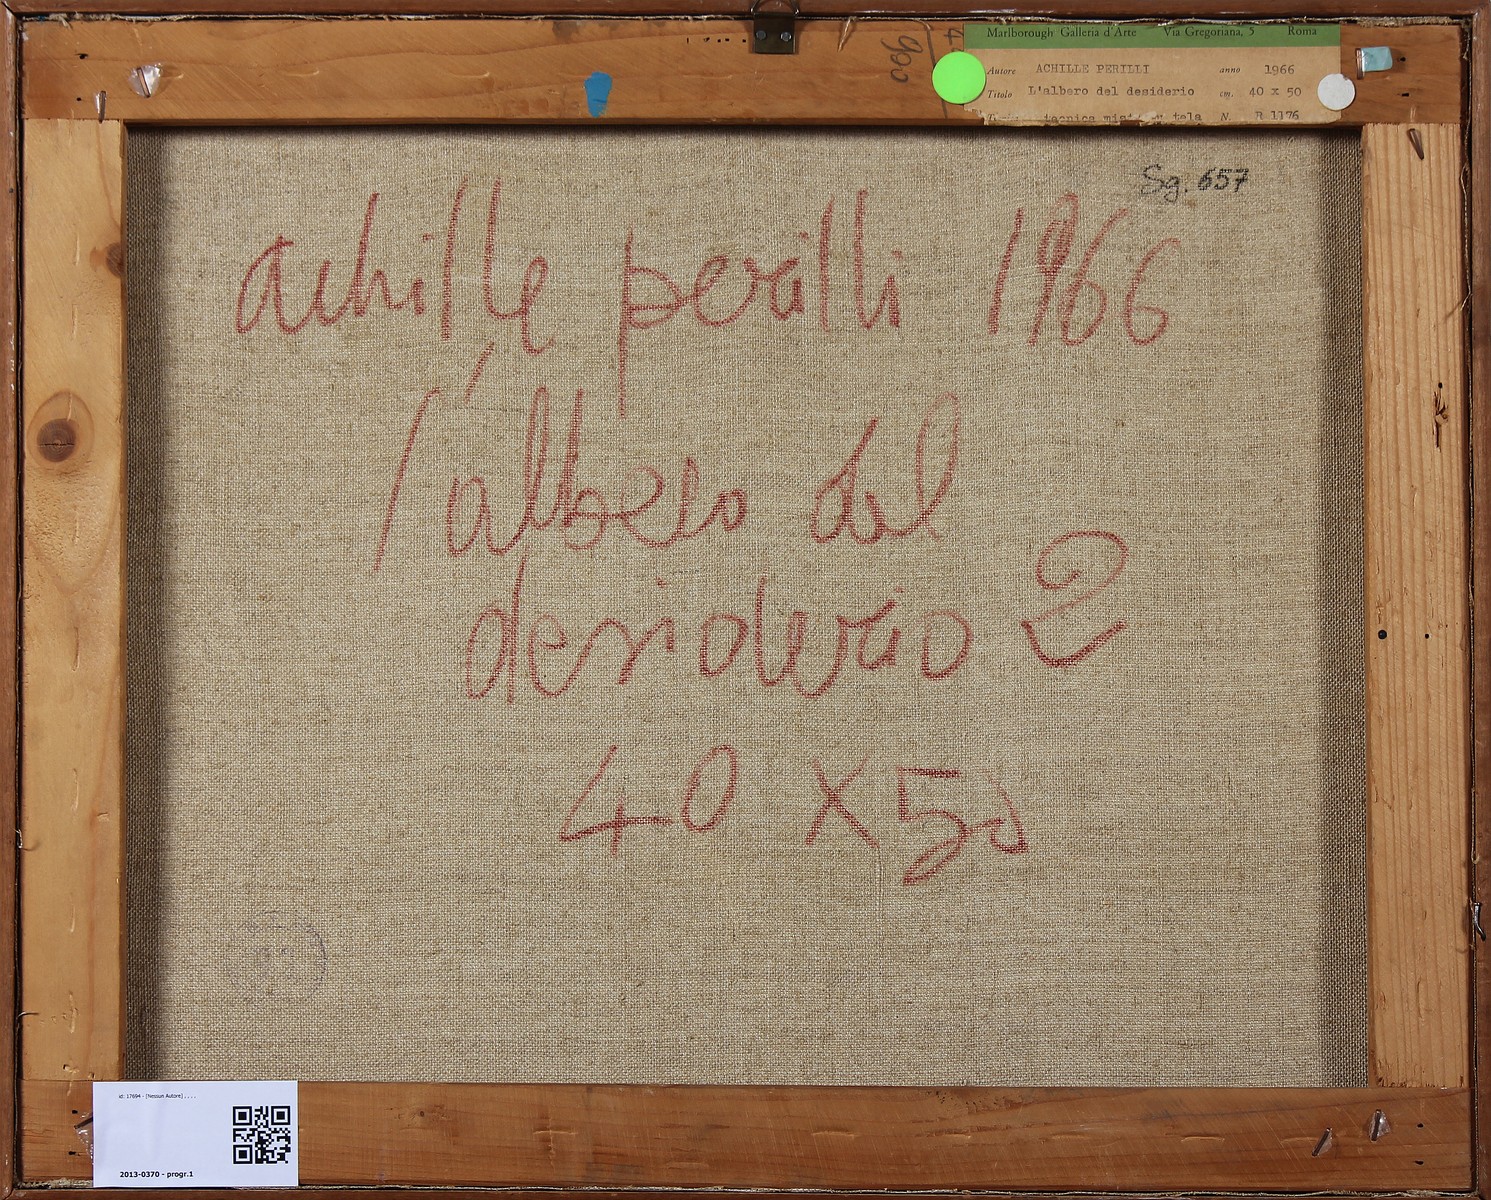 Marlborough Galleria d'Arte Via Gregoriana, 5 Roma
Autore ACHILLE PERILLI anno 1966
Titolo L'albero del desiderio cm. 40 x 50
tecnica tela N. R 1176
990
Sg. 657
achille perilli 1966
l'albero del
desiderio 2
40 x 50
id: 17694 - [Nessun Autore] , , , ,
2013-0370 - progr.1